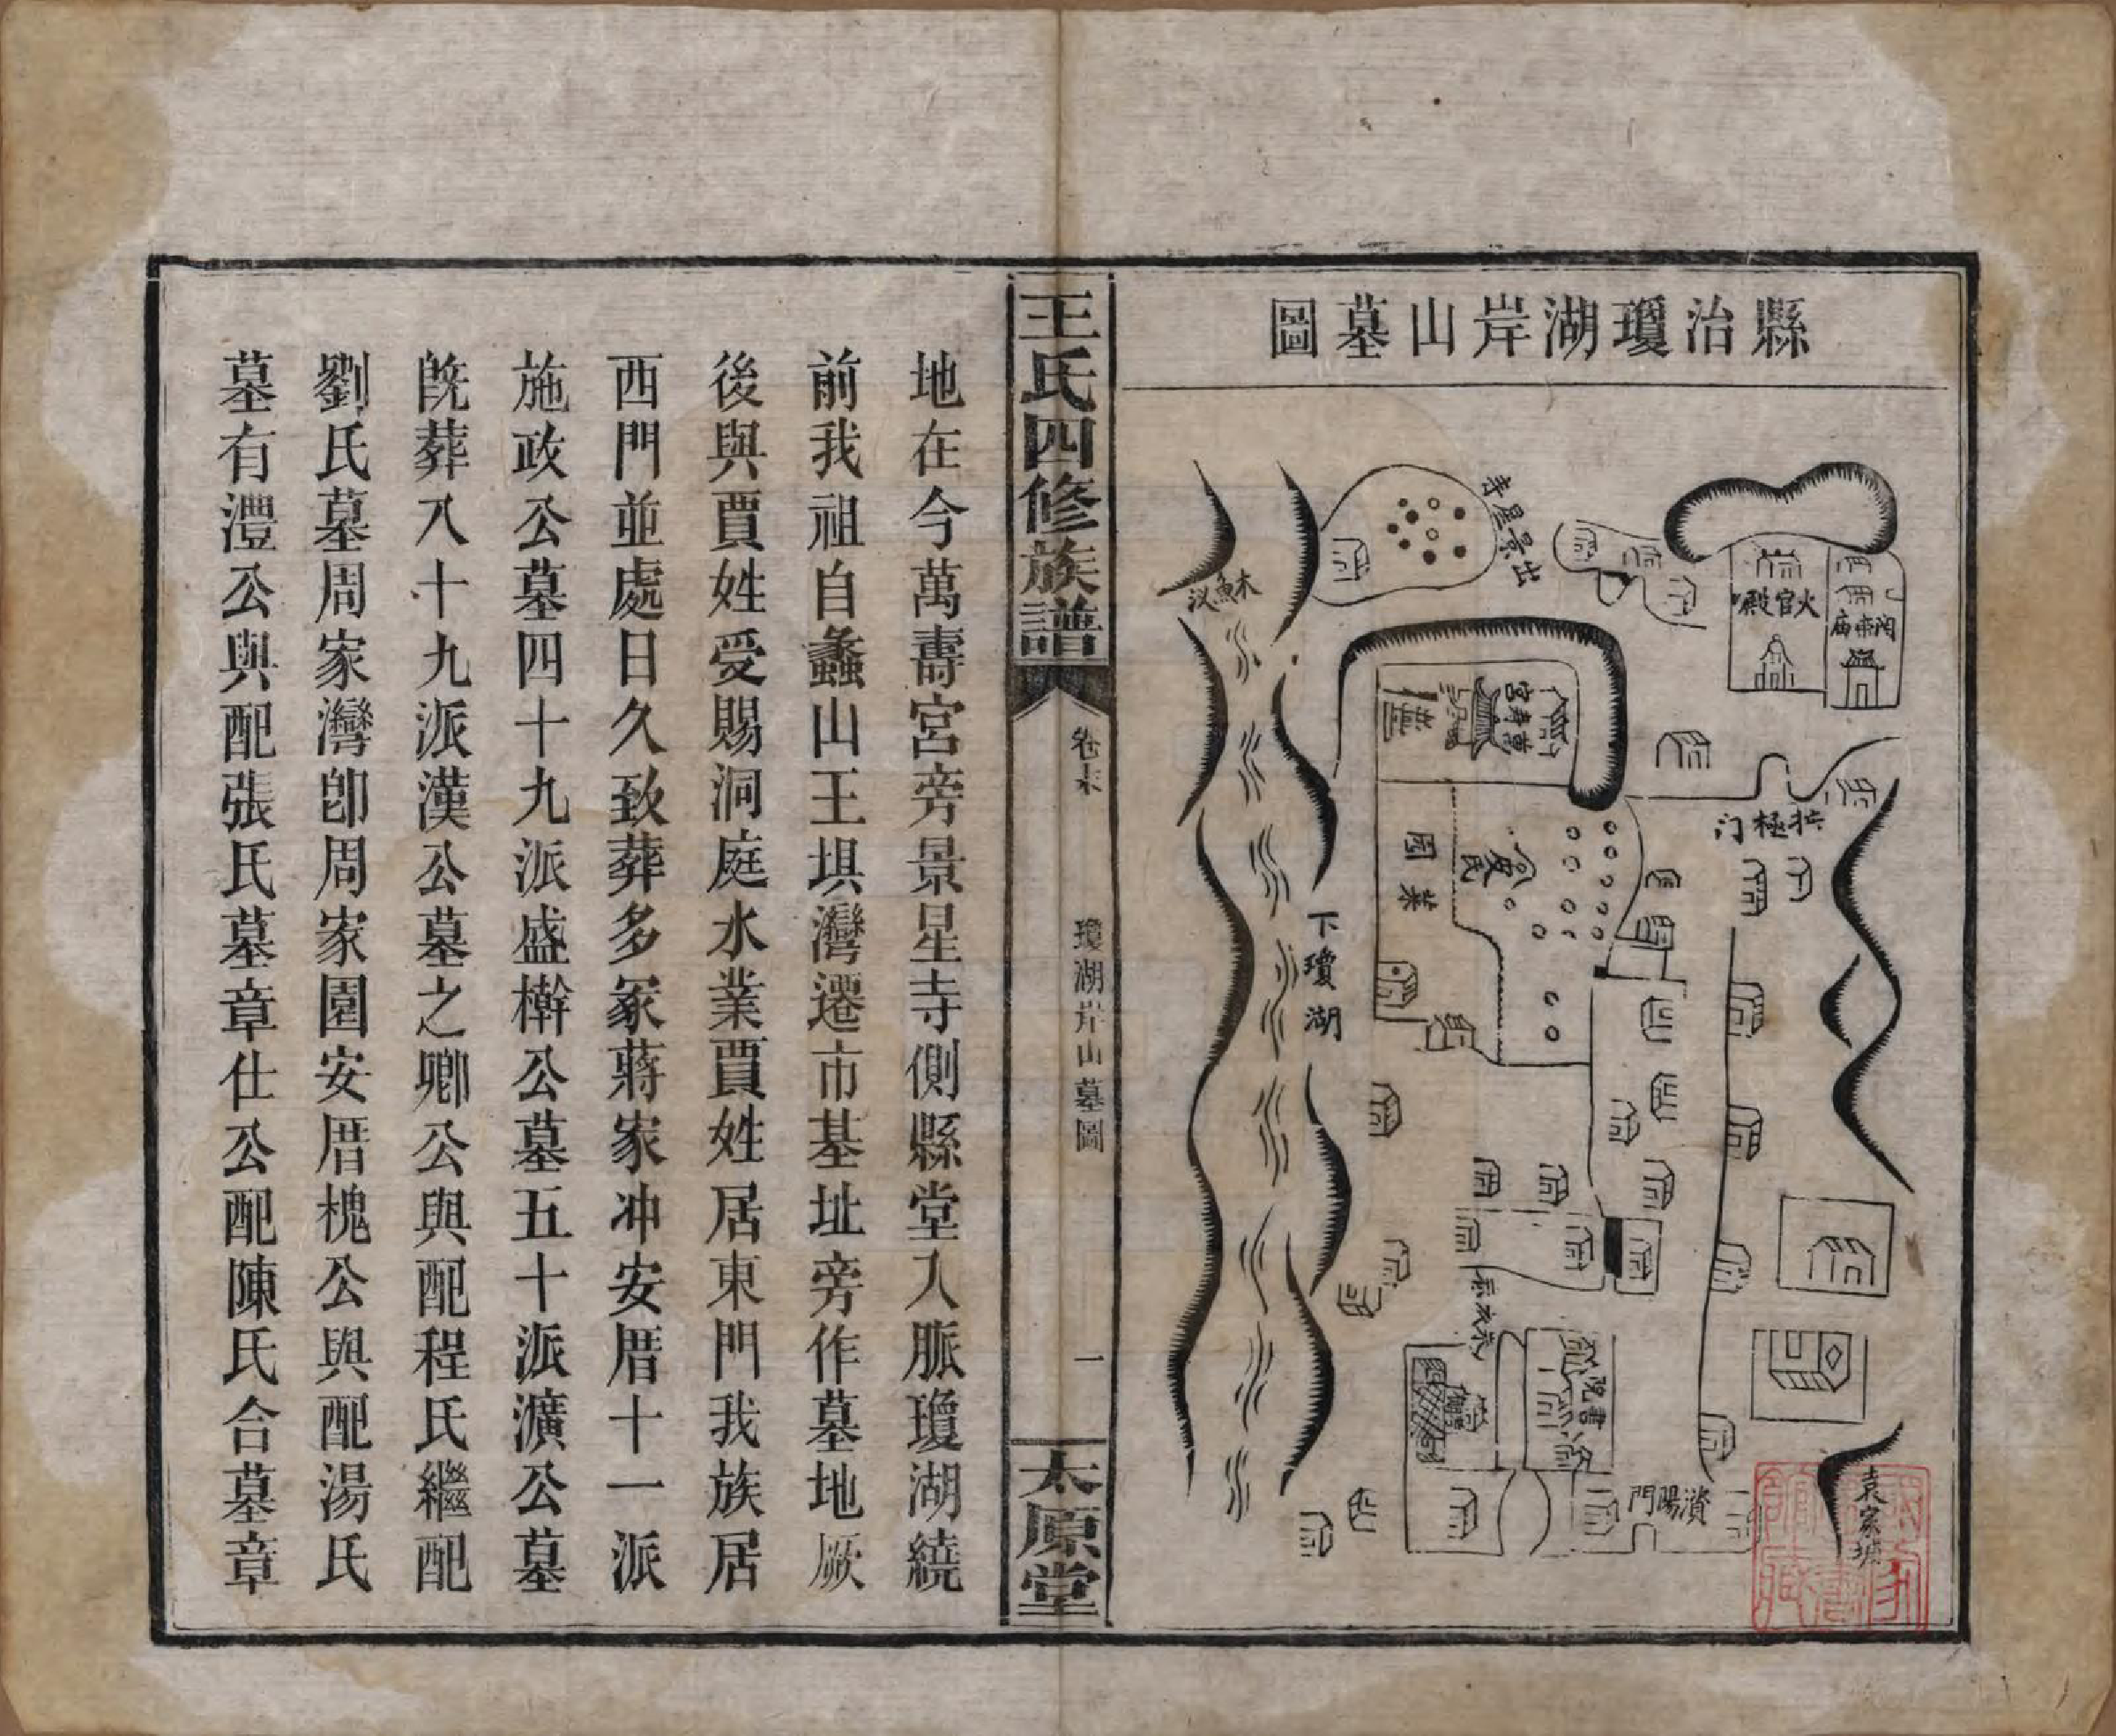 縣治瓊湖岸山墓圖
火官殿
関帝庙
出景星寺
木魚汊
萬壽宮
拱極门
菜園
下瓊湖
書院
資陽門
袁家壋
王氏四修族譜
卷末
瓊湖岸山墓圖
一
太原堂
地在今萬壽宮旁景星寺側縣堂入脈瓊湖繞
前我祖自蠡山王垻灣遷市基址旁作墓地厥
後與賈姓受賜洞庭水業賈姓居東門我族居
西門並處日久致葬多冢蔣家冲安厝十一派
施政公墓四十九派盛檊公墓五十派瀇公墓
旣葬八十九派漢公墓之卿公與配程氏繼配
劉氏墓周家灣卽周家園安厝槐公與配湯氏
墓有澧公與配張氏墓章仕公配陳氏合墓章